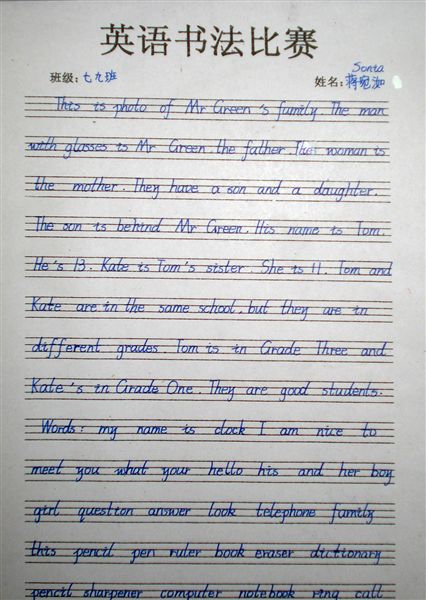 英语书法比赛
班级：七九班
Sonia
姓名：蒋宛洳
This is photo of Mr Green's family. The man
with glasses is Mr Green the father. That woman is
the mother. They have a son and a daughter.
The son is behind Mr Green. His name is Tom.
He's 13. Kate is Tom's sister. She is 11. Tom and
Kate are in the same school, but they are in
different grades. Tom is in Grade Three and
Kate's in Grade One. They are good students.
Words: my name is clock I am nice to
meet you what your hello his and her boy
girl question answer look telephone family
this pencil pen ruler book eraser dictionary
pencil sharpener computer notebook ring call